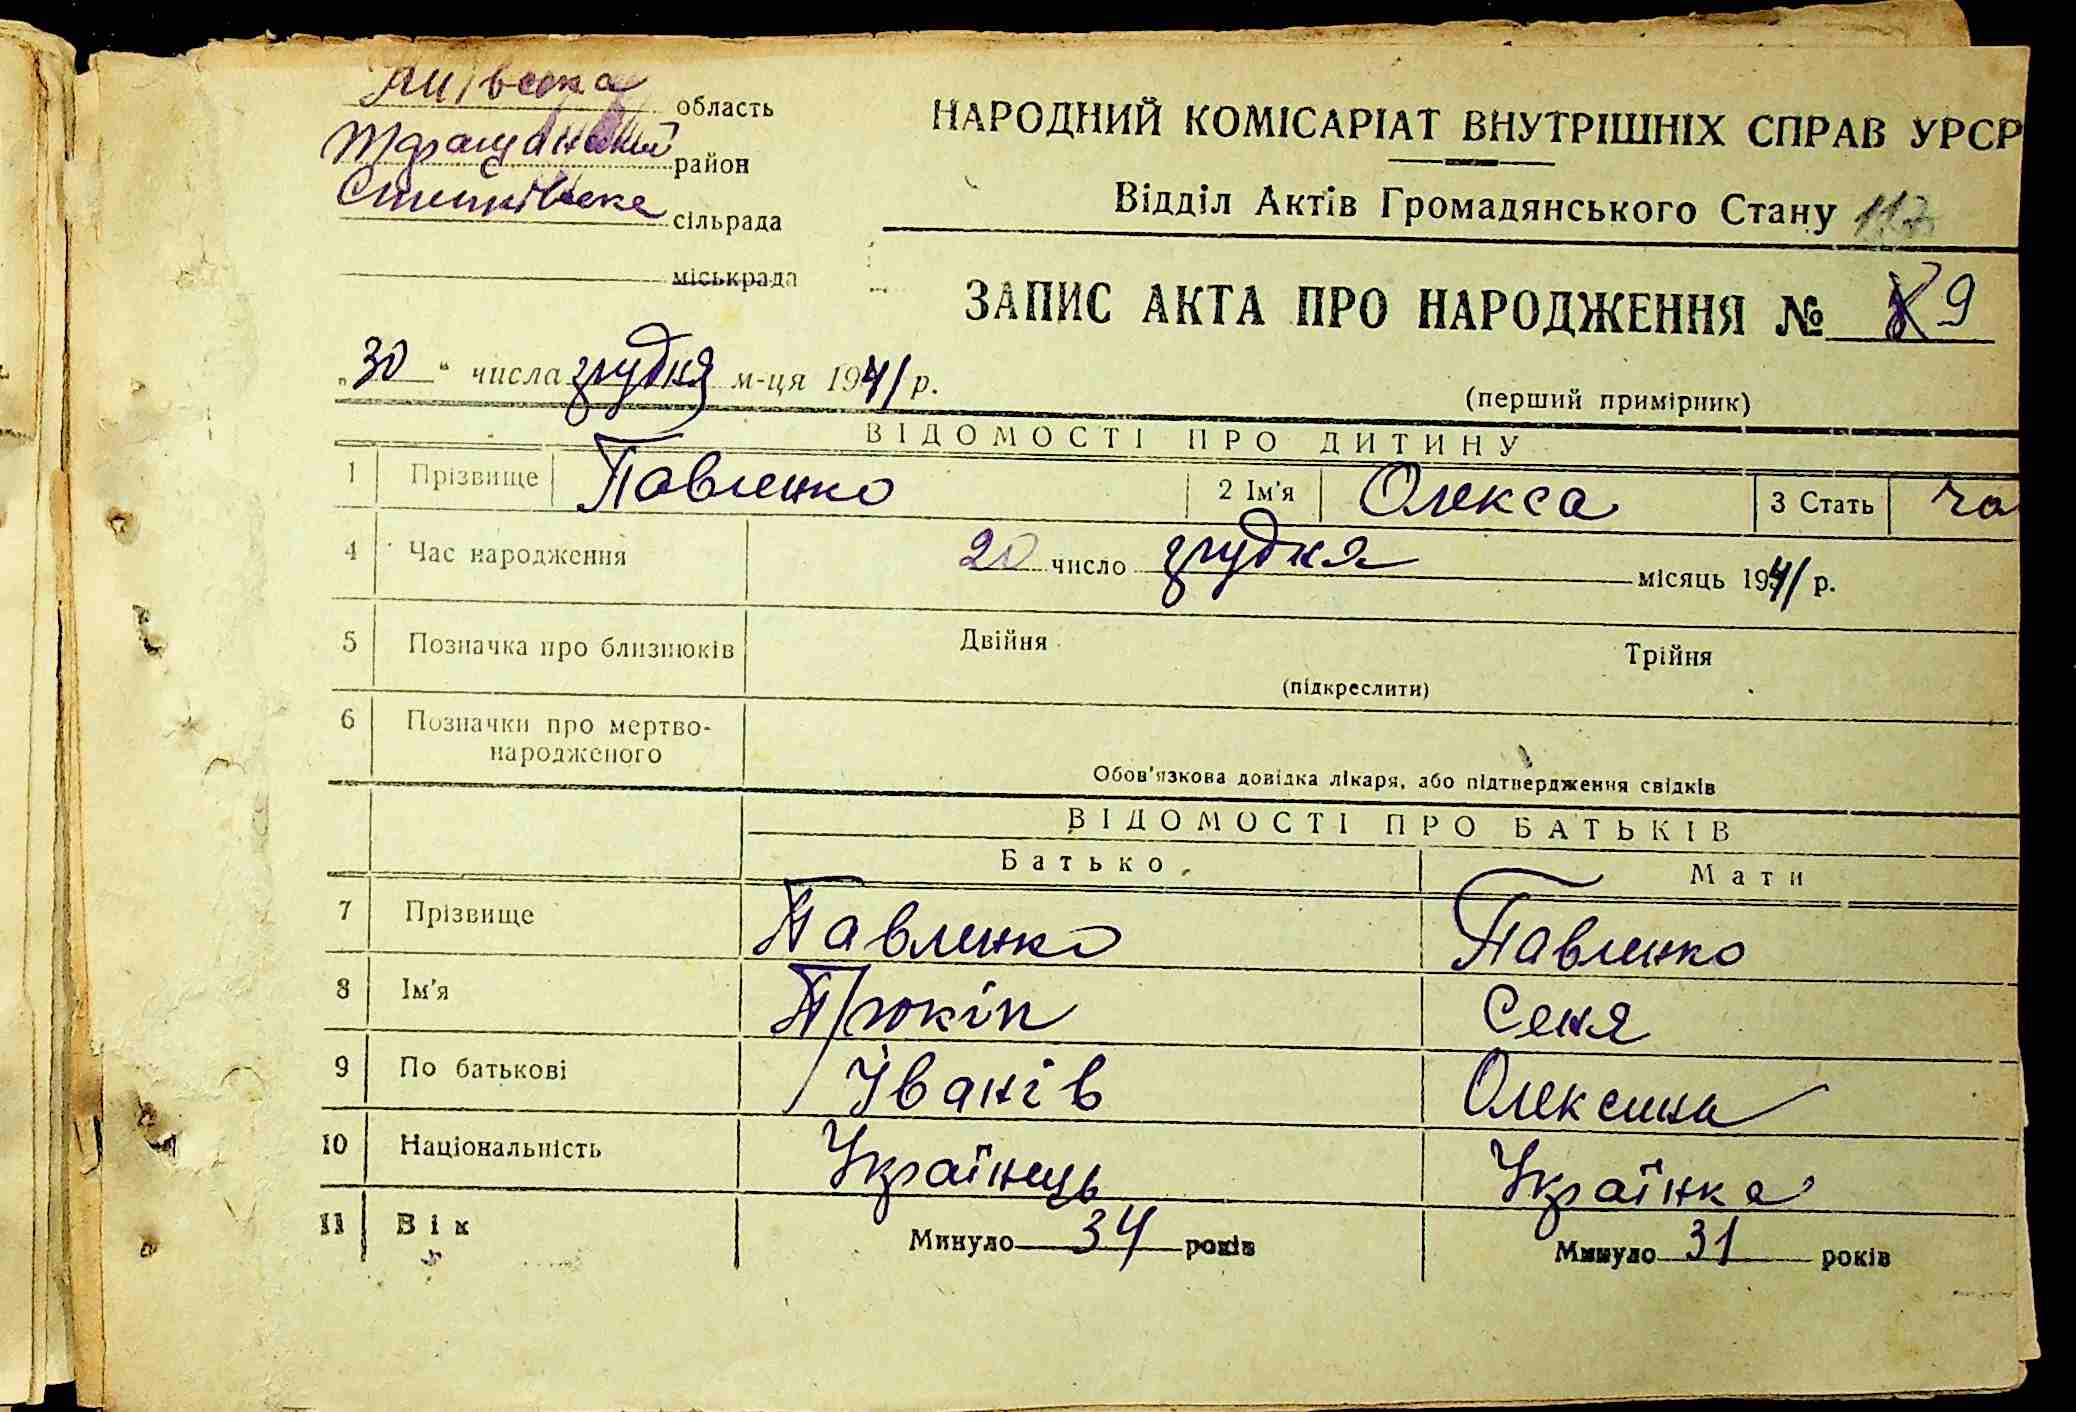 Київська область
Таращанський район
сільрада
міськрада
НАРОДНИЙ КОМІСАРІАТ ВНУТРІШНІХ СПРАВ УРСР
Відділ Актів Громадянського Стану 117
ЗАПИС АКТА ПРО НАРОДЖЕННЯ № 9
„30“ числа грудня м-ця 1941 р.
(перший примірник)
ВІДОМОСТІ ПРО ДИТИНУ
1 Прізвище Павленко 2 Ім'я Олекса 3 Стать чо
4 Час народження 20 число грудня місяць 1941 р.
5 Позначка про близнюків Двійня Трійня
(підкреслити)
6 Позначки про мертво-
народженого
Обов'язкова довідка лікаря, або підтвердження свідків
ВІДОМОСТІ ПРО БАТЬКІВ
Батько Мати
7 Прізвище Павленко Павленко
8 Ім'я Прокіп Сеня
9 По батькові Іванів
10 Національність Українець Українка
11 Вік Минуло 34 років Минуло 31 років